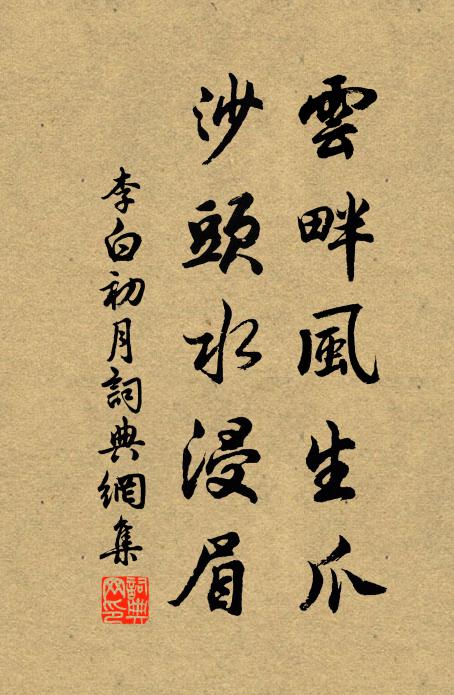 雲畔風生爪
沙頭水浸眉
李白初月詞典網集
詞典網印